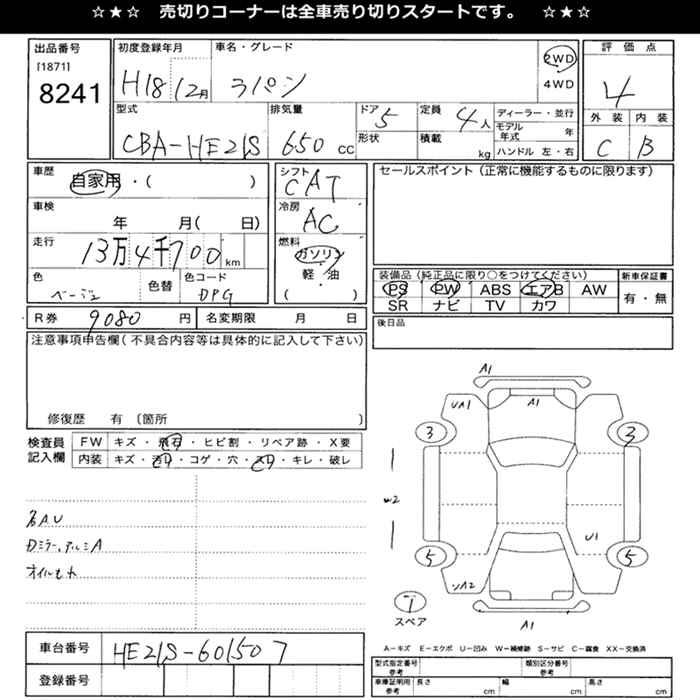 ☆★☆ 売切りコーナーは全車売り切りスタートです。 ☆★☆
出品番号 初度登録年月 車名・グレード 2WD 評価点
[1871]
8241 H18 12月 ラパン 4WD 4
型式 排気量 ドア 5 定員 4人 ディーラー・並行 外装 内装
CBA-HE21S 650 cc 形状 積載 kg モデル年式 年 C B
ハンドル 左・右
車歴 シフト セールスポイント(正常に機能するものに限ります)
自家用・( ) CAT
車検 冷房
年 月( 日) AC
走行 燃料
13万4千700 km ガソリン
色 色替 色コード 軽・油 装備品(純正品に限り○をつけてください) 新車保証書
ベージュ DPG ( ) PS PW ABS エアB AW 有・無
SR ナビ TV カワ
R券 9080 円 名変期限 月 日 後日品
注意事項申告欄(不具合内容等は具体的に記入して下さい)
修復歴 有 〔箇所 〕
検査員 FW キズ・飛石・ヒビ割・リペア跡・X要
記入欄 内装 キズ・汚れ・コゲ・穴・スレ・キレ・破レ
A1
UA1 A1
3 3
W2
U1
5 5
A2
T
スペア
A1
各AU
Dミラー,アルミA
オイルモレ
車台番号 HE21S-601507
登録番号
A-キズ E-エクボ U-凹み W-補修跡 S-サビ C-腐食 XX-交換済
型式指定番号 参考 類別区分番号 参考
車庫証明用 参考 長さ cm 幅 cm 高さ cm